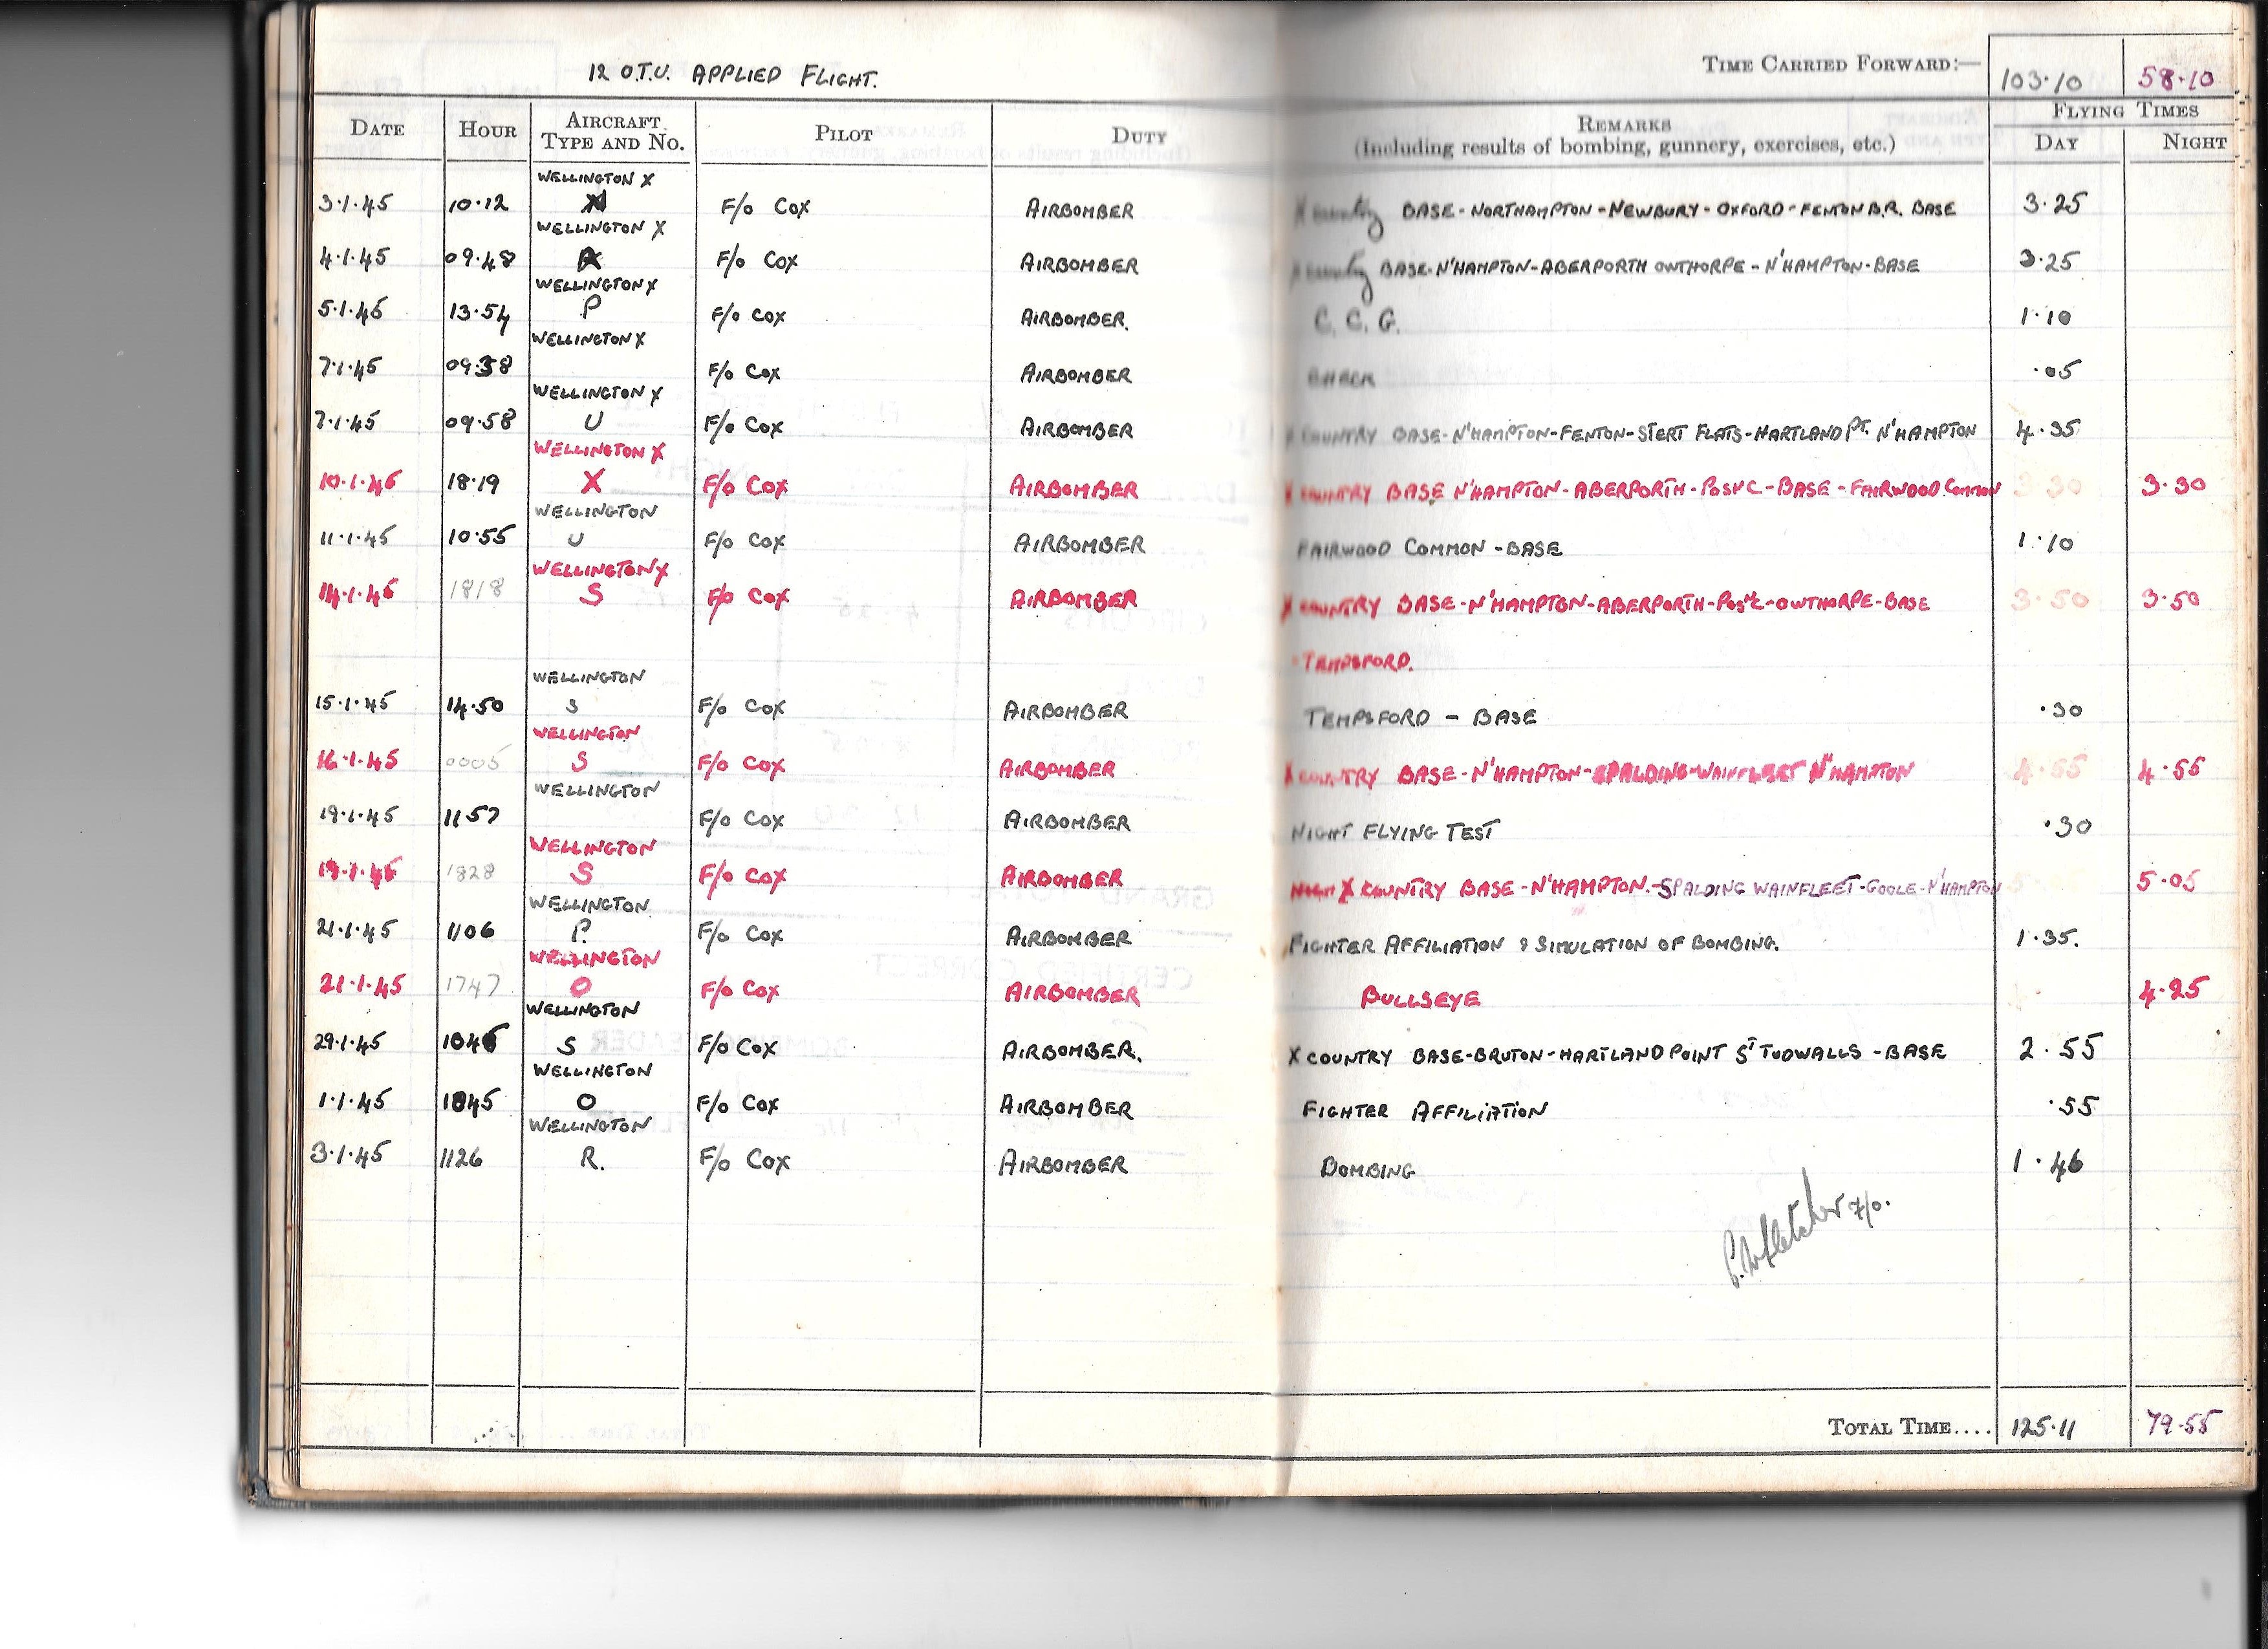 12 O.T.U. APPLIED FLIGHT.
TIME CARRIED FORWARD:— 103.10 58.10
DATE HOUR AIRCRAFT TYPE AND NO. PILOT DUTY REMARKS (Including results of bombing, gunnery, exercises, etc.) FLYING TIMES DAY NIGHT
WELLINGTON X
3.1.45 10.12 F/o Cox AIRBOMBER X Country BASE - NORTHAMPTON - NEWBURY - OXFORD - FENTON B.R. BASE 3.25
WELLINGTON X
4.1.45 09.48 A F/o Cox AIRBOMBER X Country BASE - N'HAMPTON - ABERPORTH OWTHORPE - N'HAMPTON - BASE 3.25
WELLINGTON X
5.1.45 13.54 P F/o Cox AIRBOMBER. C. C. G. 1.10
WELLINGTON X
7.1.45 09.38 F/o Cox AIRBOMBER .05
WELLINGTON X
7.1.45 09.58 U F/o Cox AIRBOMBER X COUNTRY BASE - N'HAMPTON - FENTON - STERT FLATS - HARTLAND PT. N'HAMPTON 4.35
WELLINGTON X
10.1.45 18.19 X F/o Cox AIRBOMBER X COUNTRY BASE N'HAMPTON - ABERPORTH - - BASE - FAIRWOOD Common 3.30 3.30
WELLINGTON
11.1.45 10.55 U F/o Cox AIRBOMBER FAIRWOOD COMMON - BASE 1.10
WELLINGTON X
14.1.45 1818 S F/o Cox AIRBOMBER X COUNTRY BASE - N'HAMPTON - ABERPORTH - - OWTHORPE - BASE 3.50 3.50
- TEMPSFORD.
WELLINGTON
15.1.45 14.50 S F/o Cox AIRBOMBER TEMPSFORD - BASE .30
WELLINGTON
16.1.45 0005 S F/o Cox AIRBOMBER X COUNTRY BASE - N'HAMPTON - SPALDING - WAINFLEET N'HAMPTON 4.55 4.55
WELLINGTON
19.1.45 1157 F/o Cox AIRBOMBER NIGHT FLYING TEST .30
WELLINGTON
19.1.45 1828 S F/o Cox AIRBOMBER NIGHT X COUNTRY BASE - N'HAMPTON. - SPALDING WAINFLEET - GOOLE - N'HAMPTON 5.05
WELLINGTON
21.1.45 1106 P. F/o Cox AIRBOMBER FIGHTER AFFILIATION & SIMULATION OF BOMBING. 1.35.
WELLINGTON
21.1.45 1747 O F/o Cox AIRBOMBER BULLSEYE 4.25
WELLINGTON
29.1.45 1045 S F/o Cox AIRBOMBER. X COUNTRY BASE - BRUTON - HARTLAND POINT ST TUDWALLS - BASE 2.55
WELLINGTON
1.1.45 1045 O F/o Cox AIRBOMBER FIGHTER AFFILIATION .55
WELLINGTON
3.1.45 1126 R. F/o Cox AIRBOMBER BOMBING 1.46
Fletcher F/o.
TOTAL TIME.... 125.11 79.55